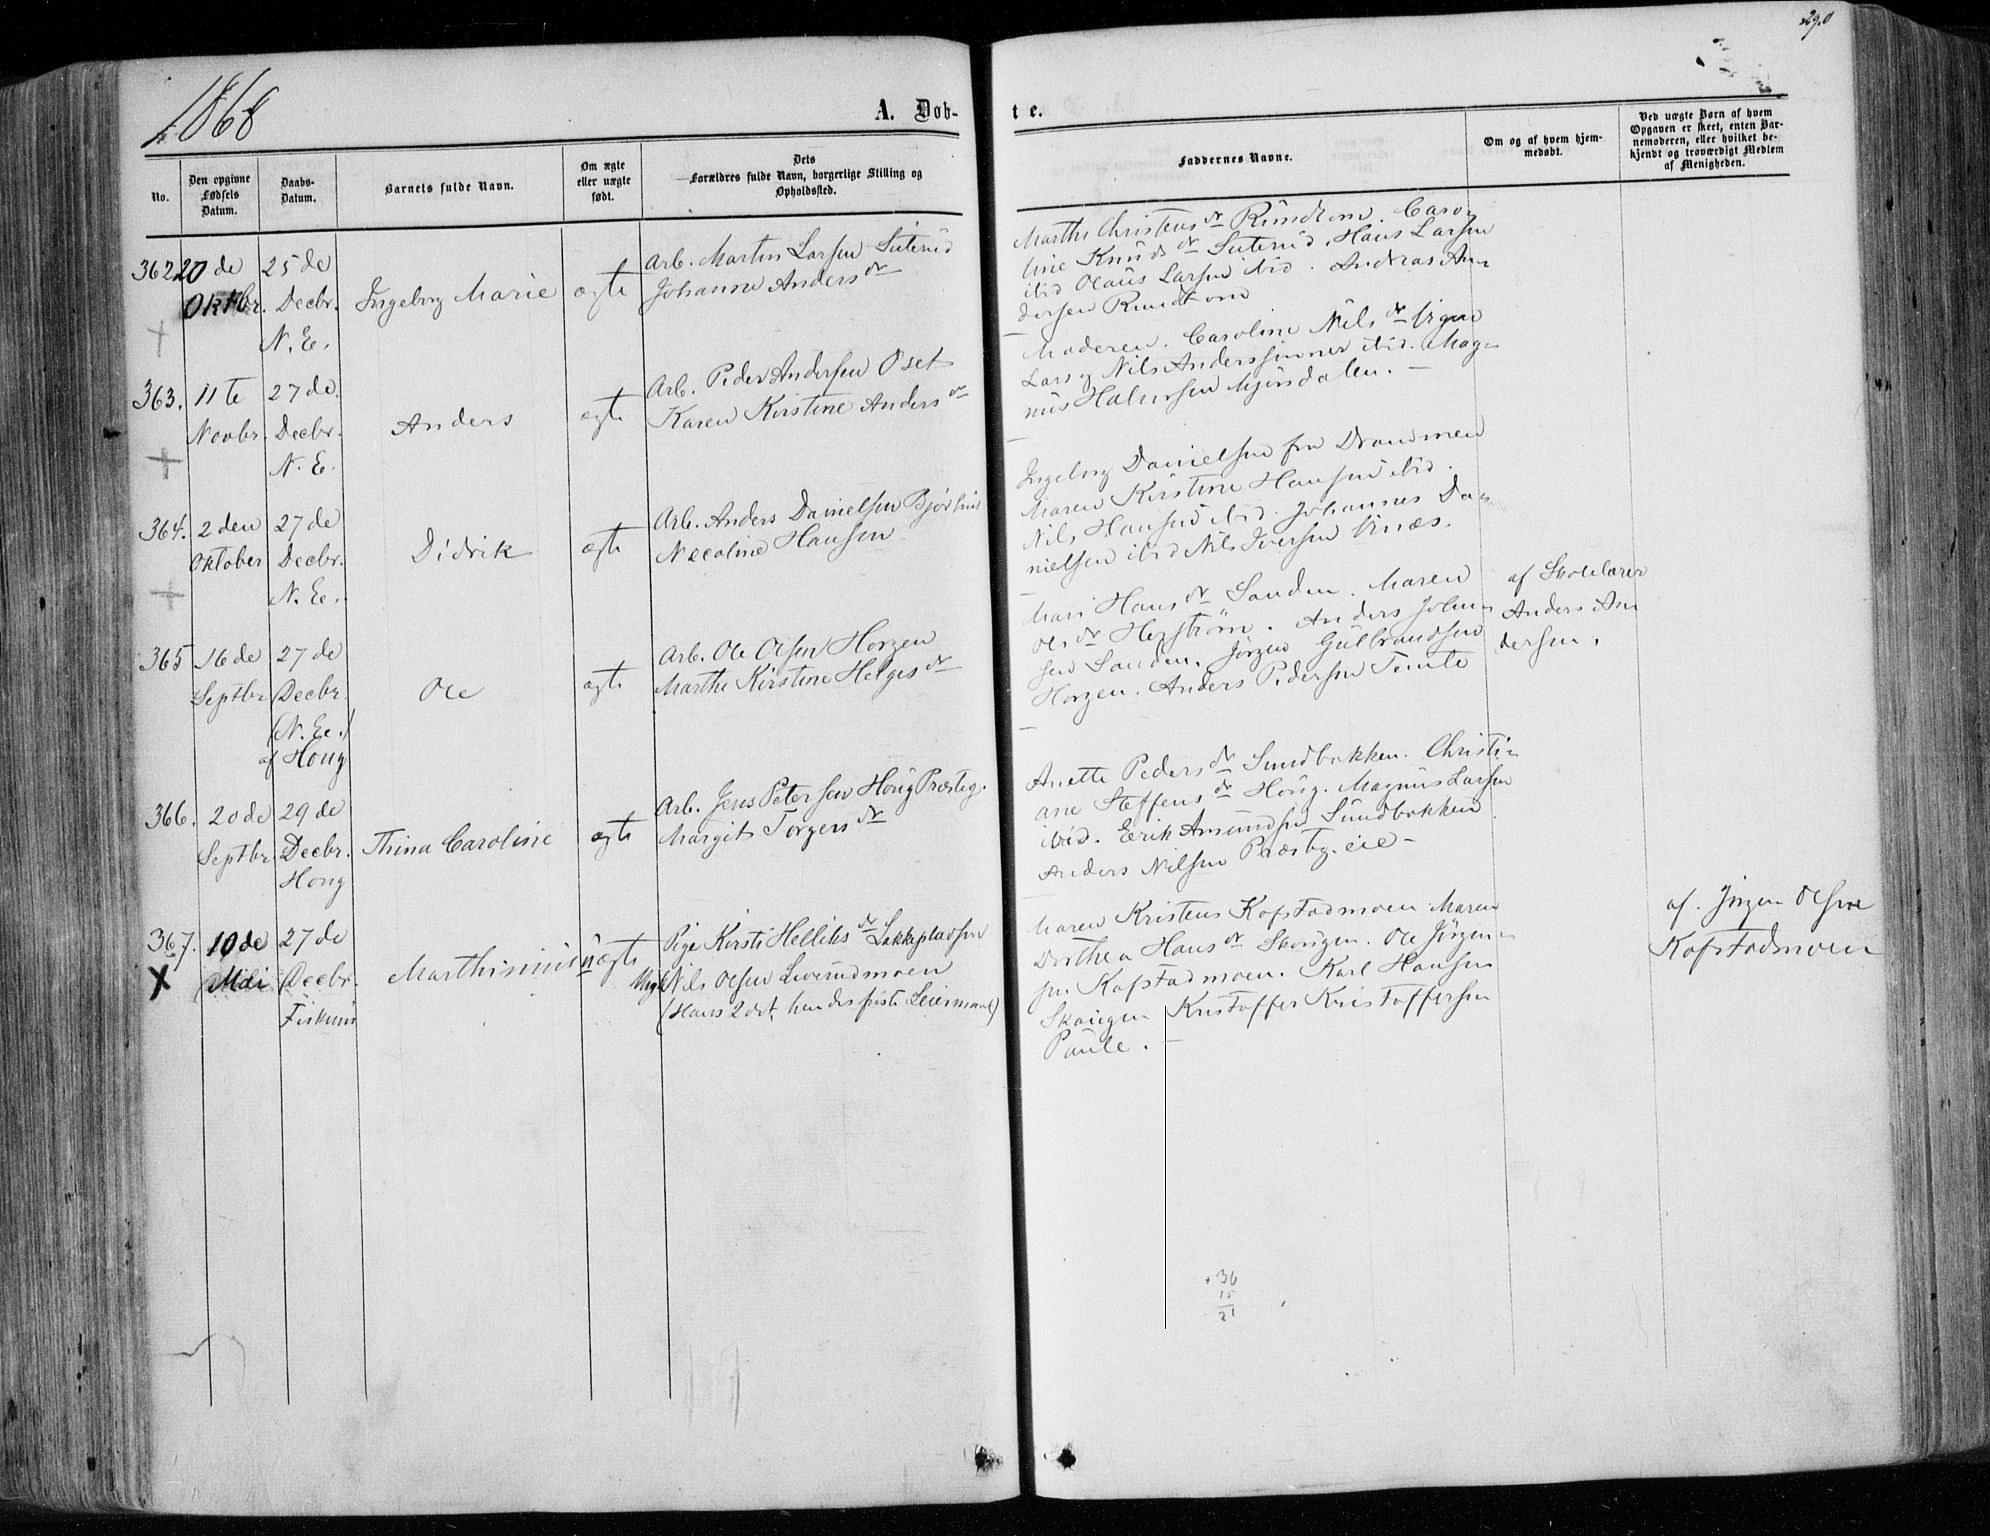 290
1868
A. Døb-
te.
No.
Den opgivne Fødsels Datum.
Daabs-Datum.
Barnets fulde Navn.
Om ægte eller uægte født.
Dets Forældres fulde Navn, borgerlige Stilling og Opholdssted.
Faddernes Navne.
Om og af hvem hjem-medøbt.
Ved uægte Børn af hvem Opgaven er skeet, enten Bar-nemoderen, eller hvilket be-kjendt og troværdigt Medlem af Menigheden.
362 20de Oktbr. 25de Decbr. N. E.
Ingeborg Marie
ægte
Arb. Martin Larsen Suterud
Johanne Andersdr
Marthe Christensdr Rundtom. Caro-
line Knudsdr Suterud, Hans Larsen
ibid Olaus Larsen ibid. Andreas An-
dersen Rundtom
363. 11te Novbr. 27de Decbr. N. E.
Anders
ægte
Arb. Peder Andersen Oset
Karen Kirstine Andersdr
Moderen. Caroline Nilsdr
Lars og Nils Anderssønner ibid. Mag-
nus Halversen Mjøndalen. —
364. 2den Oktober 27de Decbr. N. E.
Didrik
ægte
Arb. Anders Danielsen Bjørhus
Nicoline Hansen
Ingeborg Danielsen fra Drammen
Maren Kirstine Hansen ibid.
Nils Hansen ibid. Johannes Da-
nielsen ibid Nils Iversen
365 16de Septbr 27de Decbr. (N. E.) af Houg
Ole
ægte
Arb. Ole Olsen Horgen
Marthe Kirstine Helgesdr
Mari Hansdr Sanden. Maren
Olsdr Hegstrøm. Anders John-
sen Sanden. Jørgen Gulbrandsen
Horgen. Anders Pedersen Tomte
af Skolelærer
Anders An
dersen.
366. 20de Septbr. 29de Decbr. Houg
Thina Caroline
ægte
Arb. Jens Petersen Houg Præsteg.
Margit Torgersdr
Anette Pedersdr Sundbakken. Christi-
ane Steffensdr Houg. Magnus Larsen
ibid. Erik Amundsen Sundbakken
Anders Nilsen Præsteg. eie —
367. 10de Mai 27de Decbr. Fiskum
Marthinius
uægte
Pige Kirsti Helliksdr Lakkepladsen
Ungk Nils Olsen Liverudmoen
(Hans 2det, hendes første Leiermaal)
Maren Kristens Kopstadmoen Maren
Dorthea Hansdr Skougen. Ole Jørgen-
sen Kopstadmoen. Karl Hansen
Skougen Kristoffer Kristoffersen
Paule. —
af. Jørgen Olsen
Kopstadmoen
+ 36
15
21